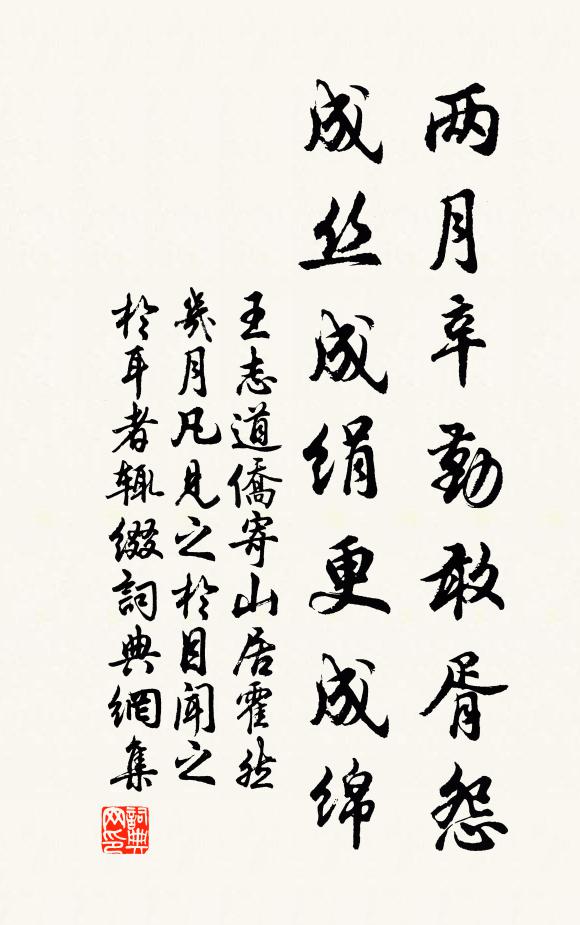 两月辛勤敢胥怨
成丝成绢更成绵
王志道僑寄山居霍然
幾月凡見之於目聞之
於耳者輒綴詞典網集
詞典网印